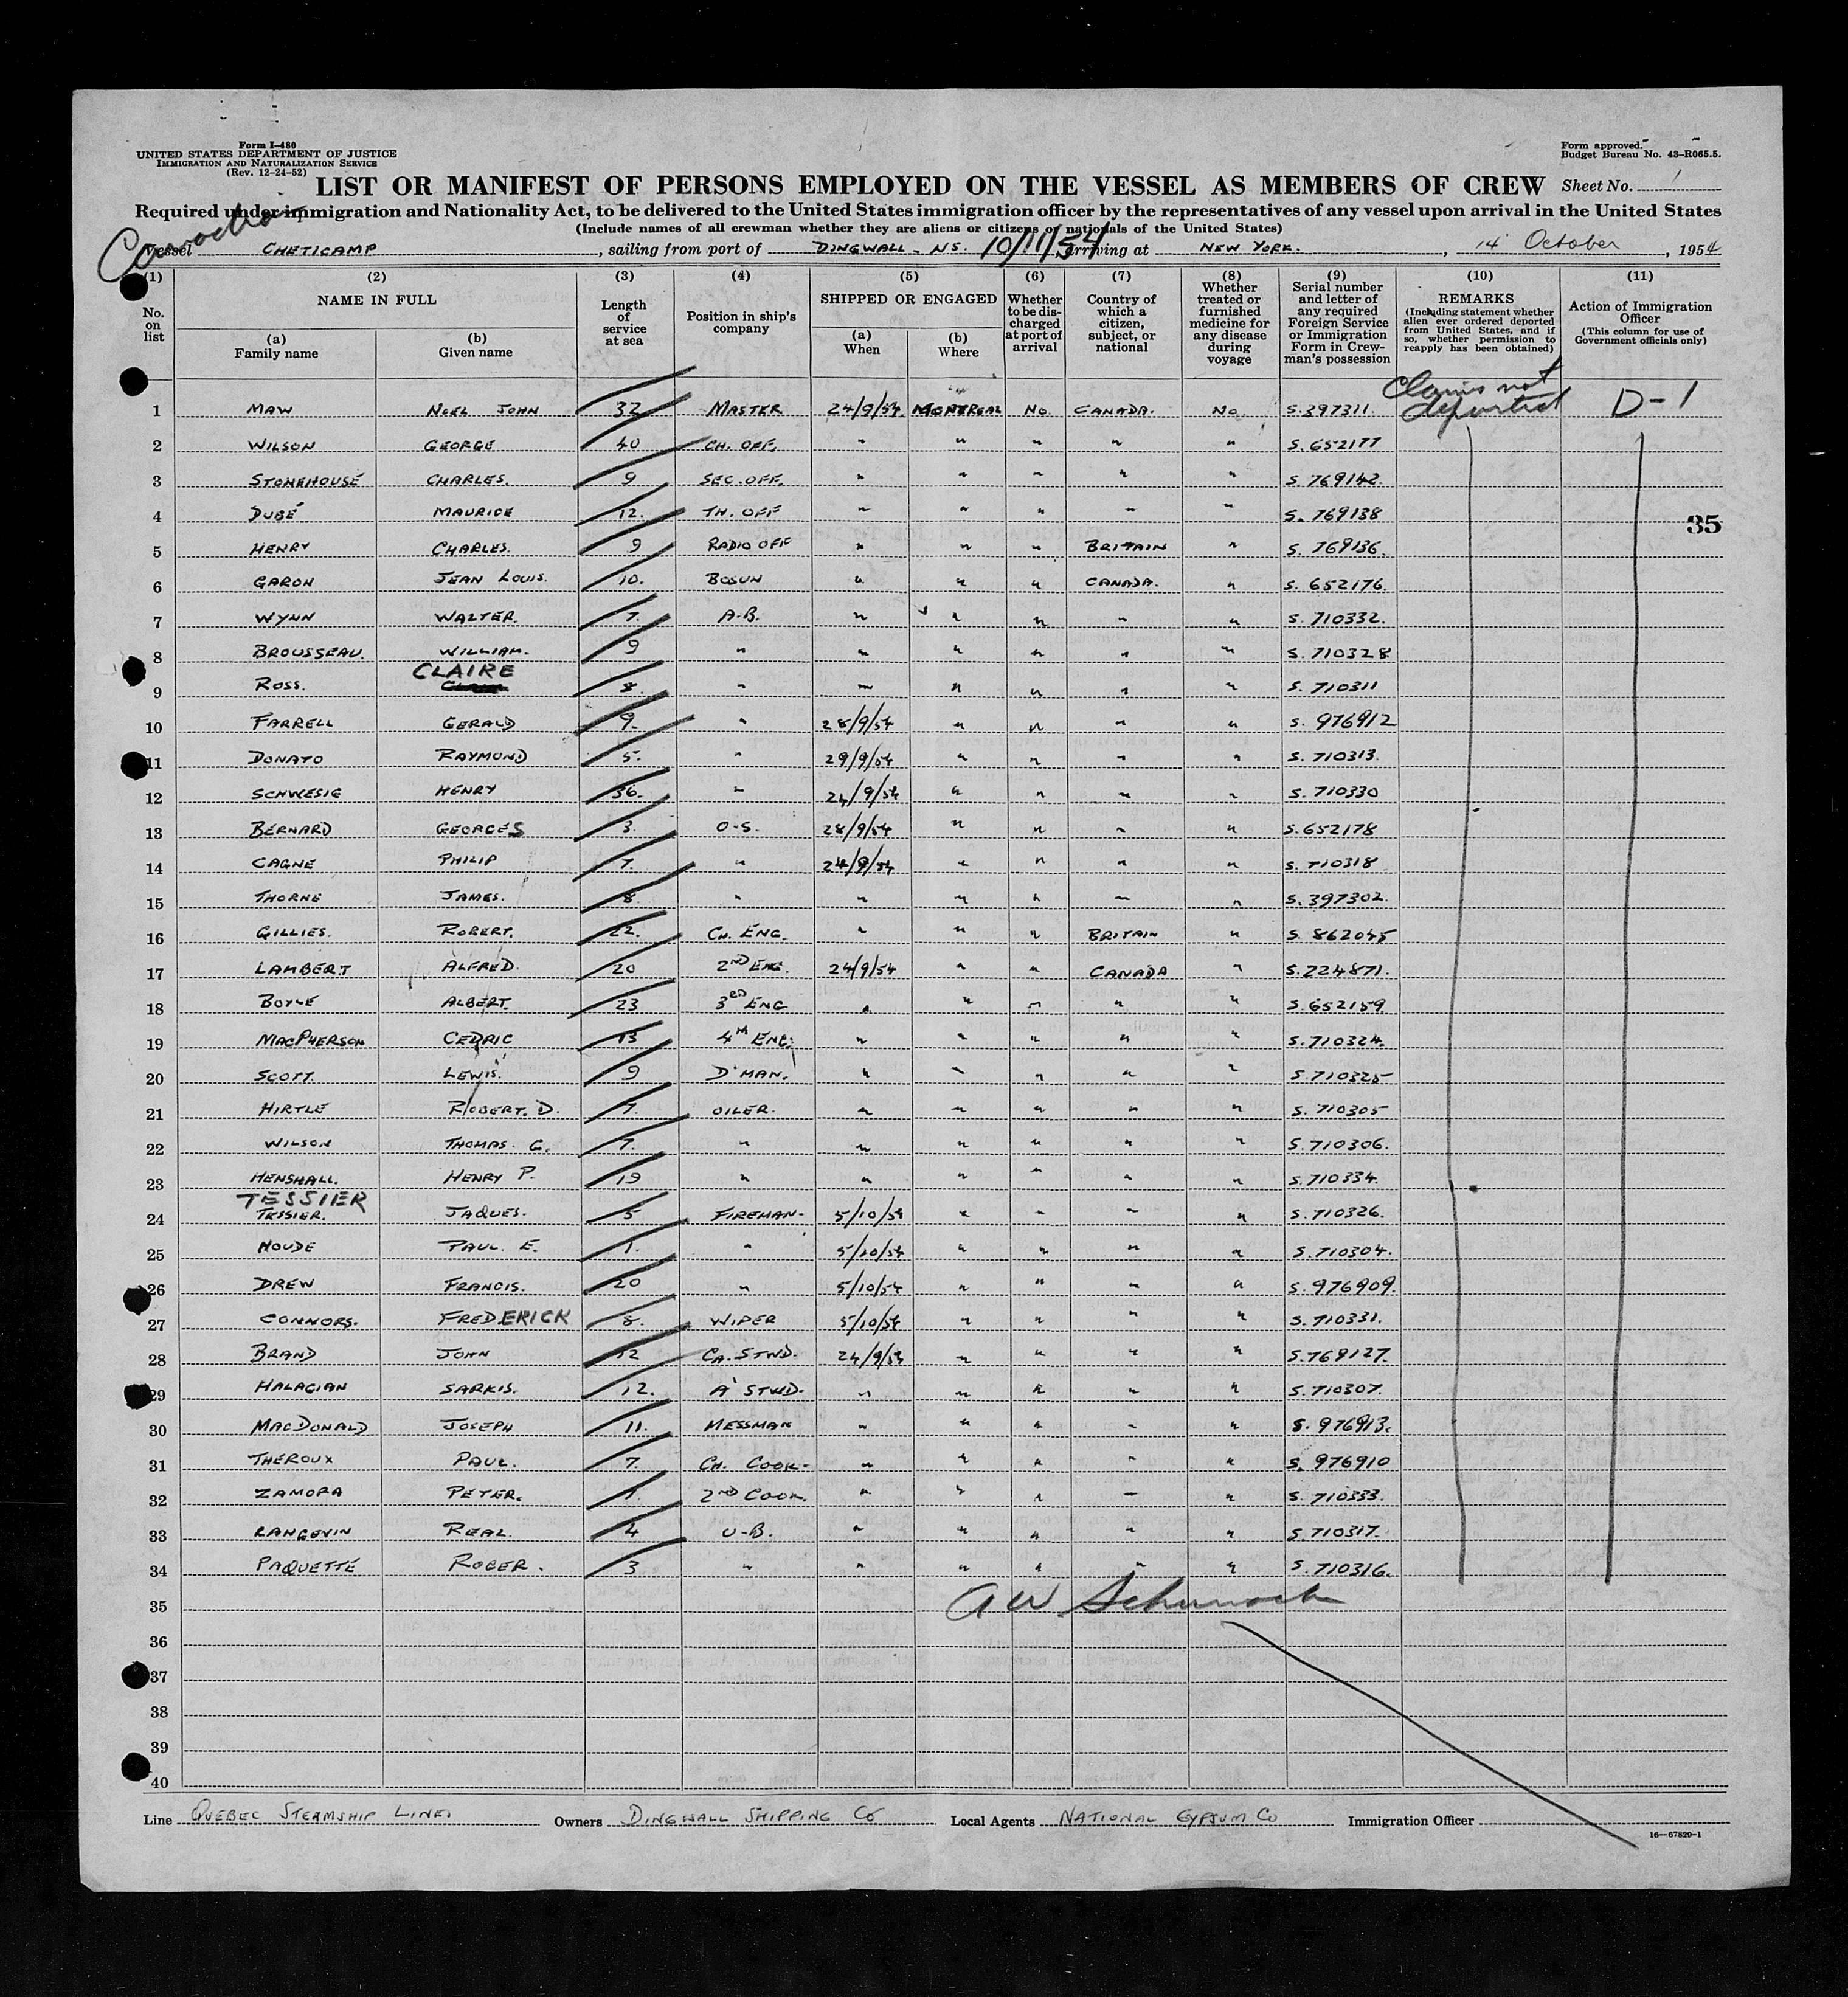 Form I-480
UNITED STATES DEPARTMENT OF JUSTICE
IMMIGRATION AND NATURALIZATION SERVICE
(Rev. 12-24-52)
Form approved.
Budget Bureau No. 43-R065.5.
LIST OR MANIFEST OF PERSONS EMPLOYED ON THE VESSEL AS MEMBERS OF CREW Sheet No. 1
Required under immigration and Nationality Act, to be delivered to the United States immigration officer by the representatives of any vessel upon arrival in the United States
(Include names of all crewman whether they are aliens or citizens or nationals of the United States)
Vessel CHETICAMP, sailing from port of DINGWALL - NS. 10/11/54, arriving at NEW YORK., 14 October, 1954
(1) (2) (3) (4) (5) (6) (7) (8) (9) (10) (11)
No. on list
NAME IN FULL
(a) Family name
(b) Given name
Length of service at sea
Position in ship's company
SHIPPED OR ENGAGED
(a) When
(b) Where
Whether to be discharged at port of arrival
Country of which a citizen, subject, or national
Whether treated or furnished medicine for any disease during voyage
Serial number and letter of any required Foreign Service or Immigration Form in Crewman's possession
REMARKS
(Including statement whether alien ever ordered deported from United States, and if so, whether permission to reapply has been obtained)
Action of Immigration Officer
(This column for use of Government officials only)
Claims not deported
1 MAW NOEL JOHN 32 MASTER 24/9/54 MONTREAL NO. CANADA. NO. S.397311. D-1
2 WILSON GEORGE 40 CH. OFF. " " " " " S.652177
3 STONEHOUSE CHARLES. 9 SEC. OFF. " " " " " S.769142.
4 DUBÉ MAURICE 12. TH. OFF " " " " " S.769138
35
5 HENRY CHARLES. 9 RADIO OFF " " " BRITAIN " S. 769136.
6 GARON JEAN LOUIS. 10. BOSUN " " " CANADA. " S. 652176.
7 WYNN WALTER. 7. A-B. " " " " " S. 710332.
8 BROUSSEAU. WILLIAM. 9 " " " " " " S. 710328
9 ROSS. CLAIRE 8. " " " " " " S. 710311
10 FARRELL GERALD 9. " 28/9/54 " " " " S. 976912
11 DONATO RAYMOND 5. " 29/9/54 " " " " S. 710313.
12 SCHWESIG HENRY 36. " 24/9/54 " " " " S. 710330
13 BERNARD GEORGES 3. O-S. 28/9/54 " " " " S.652178
14 CAGNE PHILIP 7. " 24/9/54 " " " " S.710318
15 THORNE JAMES. 8. " " " " " " S.397302.
16 GILLIES. ROBERT. 22. CH. ENG. " " " BRITAIN " S. 862045
17 LAMBERT ALFRED. 20 2ND ENG. 24/9/54 " " CANADA " S.224871.
18 BOYLE ALBERT. 23 3RD ENG " " " " " S.652159
19 MACPHERSON CEDRIC 13 4TH ENG. " " " " " S.710324.
20 SCOTT. LEWIS. 9 D'MAN. " " " " " S.710325
21 HIRTLE ROBERT. D. 7. OILER. " " " " " S. 710305
22 WILSON THOMAS. G. 7. " " " " " " S.710306.
23 HENSHALL. HENRY P. 19 " " " " " " S.710334.
TESSIER
24 TESSIER. JAQUES. 5 FIREMAN- 5/10/54 " " " " S.710326.
25 HOUDE PAUL. E. 1. " 5/10/54 " " " " S.710304.
26 DREW FRANCIS. 20 " 5/10/54 " " " " S.976909.
27 CONNORS. FREDERICK 8. WIPER 5/10/54 " " " " S.710331.
28 BRAND JOHN 12 CH. STWD. 24/9/54 " " " " S.769127.
29 HALAGIAN SARKIS. 12. A' STWD. " " " " " S.710307.
30 MACDONALD JOSEPH 11. MESSMAN " " " " " S. 976913.
31 THEROUX PAUL. 7. CH. COOK- " " " " " S. 976910
32 ZAMORA PETER. 7. 2ND COOK. " " " " " S. 710333.
33 LANGEVIN REAL. 4 U-B. " " " " " S.710317.
34 PAQUETTE ROGER. 3 " " " " " " S.710316.
35
36
37
38
39
40
Line QUEBEC STEAMSHIP LINES Owners DINGWALL SHIPPING CO Local Agents NATIONAL GYPSUM CO Immigration Officer
16-67829-1